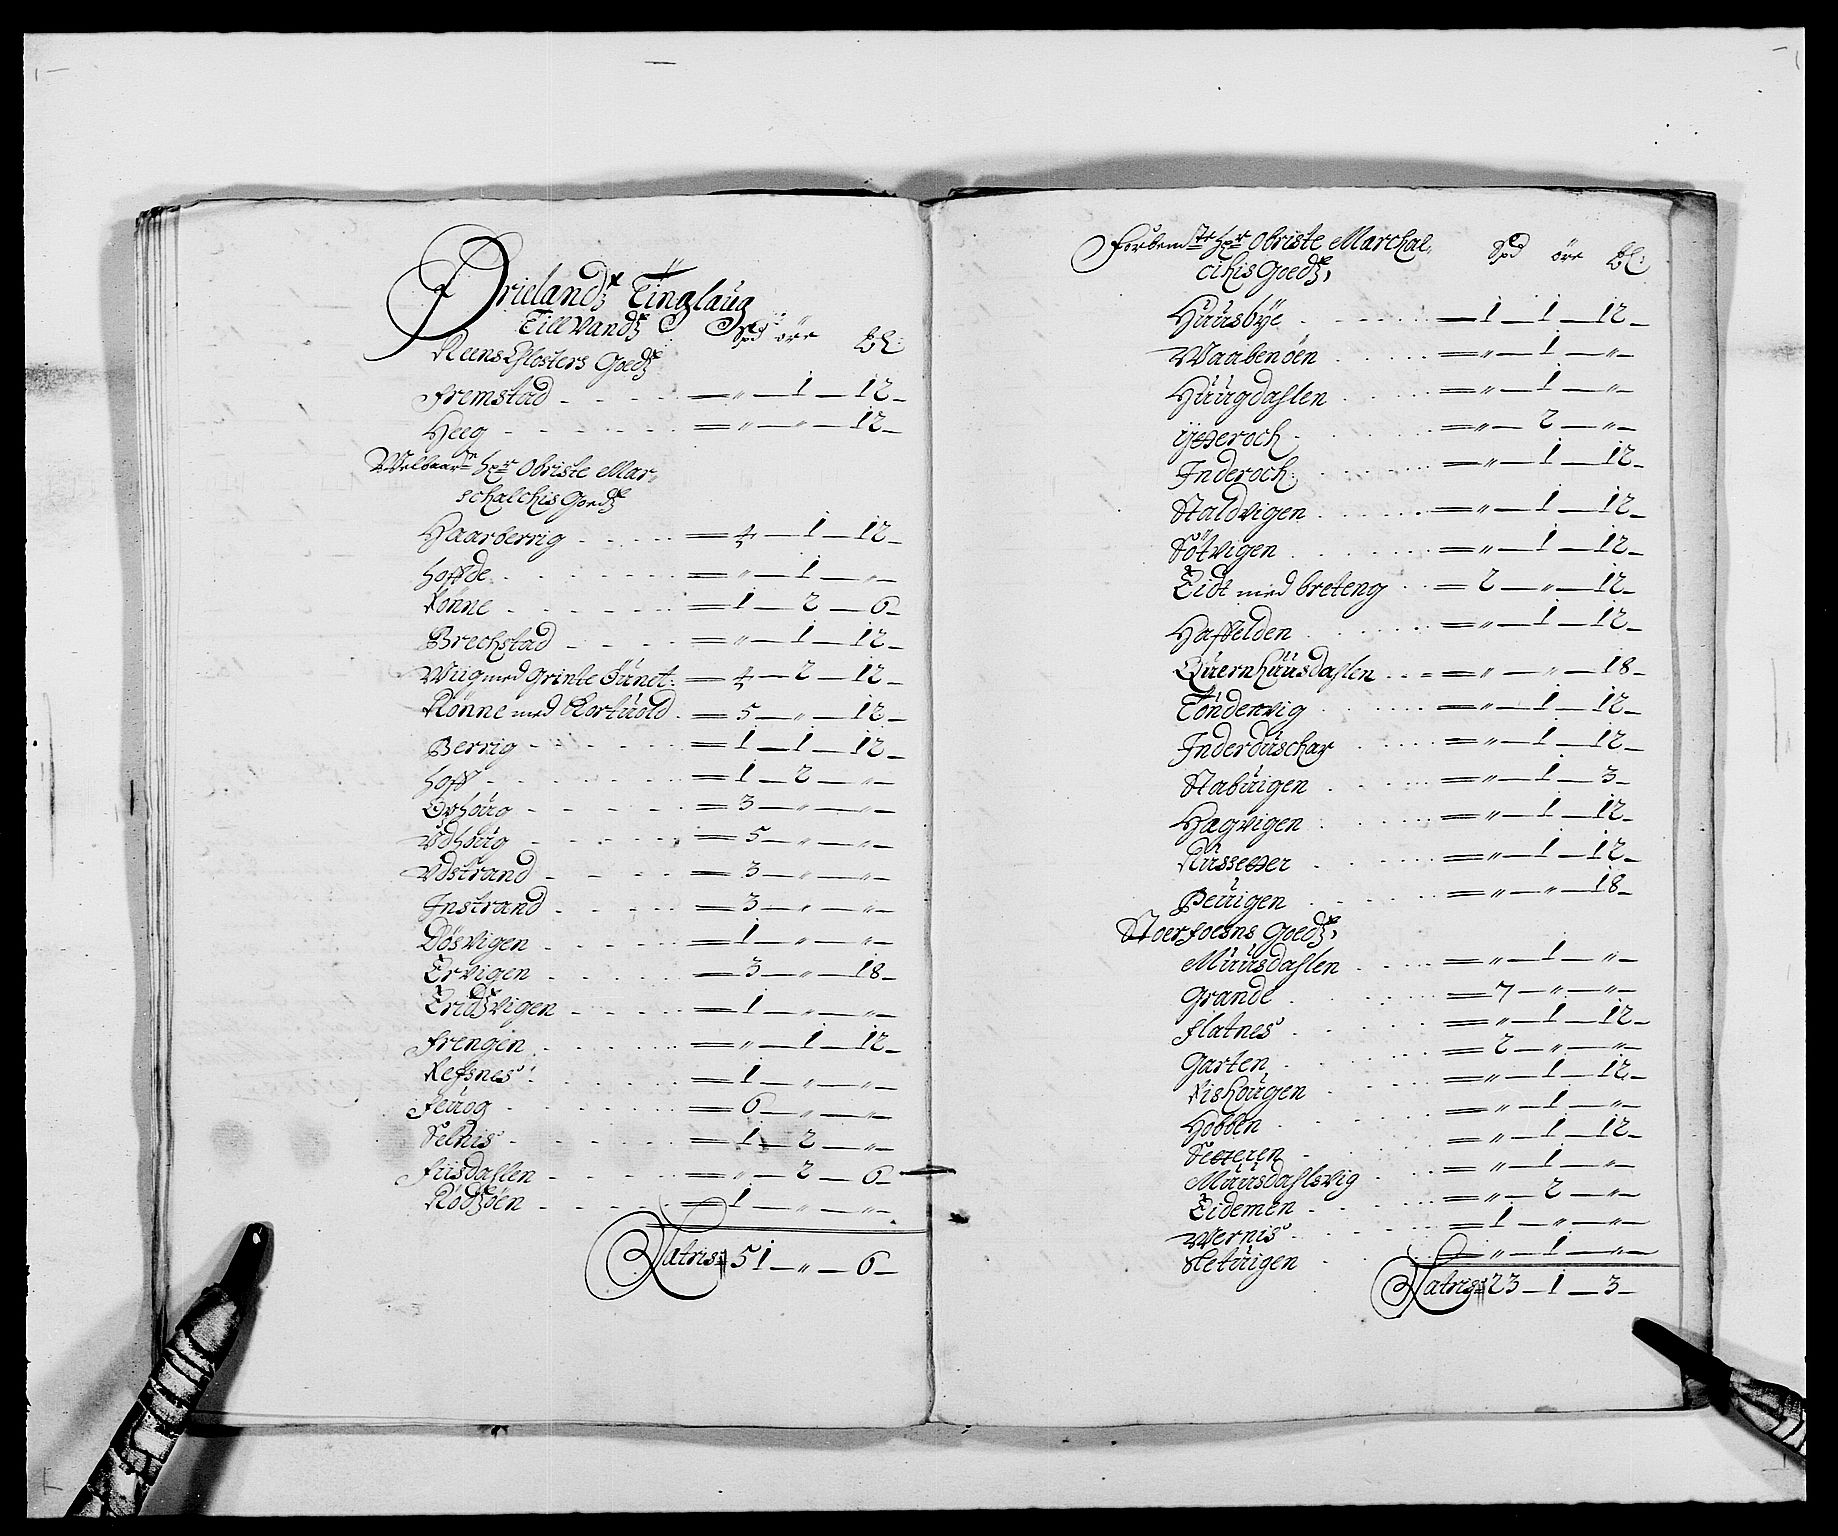 Ørieland Tinglaug
Till vands Spd öre
Reens Closters Goeds
Fremstad = " — 1 — 12 —
Heeg = " — " — 12 —
Welbaarne Hr Obriste Mar-
schalchis Goeds
Haarberrig = 4 — 1 — 12 —
Hoffde = " — 1 — " —
Rönne = 1 — 2 — 6 —
Brechstad = " — 1 — 12 —
Wiig med Grinte = 4 — 2 — 12 —
Rönne med = 5 — " — 12 —
Berrig = 1 — 1 — 12 —
Hoff = 1 — 2 — " —
Ophoug = 3 — " — " —
Udhoug = 5 — " — " —
Udstrand = 3 — " — " —
Instrand = 3 — " — " —
Dösvigen = 1 — " — " —
Ervigen = 3 — " — 18 —
Eridsvigen = 1 — " — " —
Frengen = " — 1 — 12 —
Refsnes = 1 — " — " —
Feüog = 6 — " — " —
Selnis = 1 — 2 — " —
Fiisdahlen = " — 2 — 6 —
Rödsöen = 1 — " — " —
Latris 51 — " — 6 —
Forbemte Hr Obriste Marchal-
chis Goeds, Spd öre
Huusbÿe = 1 — 1 — 12 —
Waabenöen = " — 1 — " —
Huugdahlen = " — 1 — " —
Ÿtteroch = " — 2 — " —
Inderoch = " — 1 — 12 —
Staldvigen = " — 1 — 12 —
Sötvigen = " — 1 — 12 —
Eidt med breteng = 2 — " — 12 —
Haffelden = " — 1 — 12 —
Quernhuusdahlen = " — " — 18 —
Töndervig = " — 1 — 12 —
Inderduschar = " — 1 — 12 —
Stabuigen = " — 1 — 3 —
Hagvigen = " — 1 — 12 —
Rüssetter = " — 1 — 12 —
Peuigen = " — " — 18 —
Stoerfoesns Goeds,
Muusdahlen = " — 1 — " —
Grande = 7 — " — " —
Flatnes = " — 1 — 12 —
Garten = 2 — " — " —
Rishougen = " — 1 — 12 —
Hobben = " — 1 — " —
Setteren = " — 1 — 12 —
Muusdahlsvig = " — 1 — " —
Eidemen = " — 2 — " —
Wernis = 1 — " — " —
Setuigen = " — 1 — " —
Latris 23 — 1 — 3 —